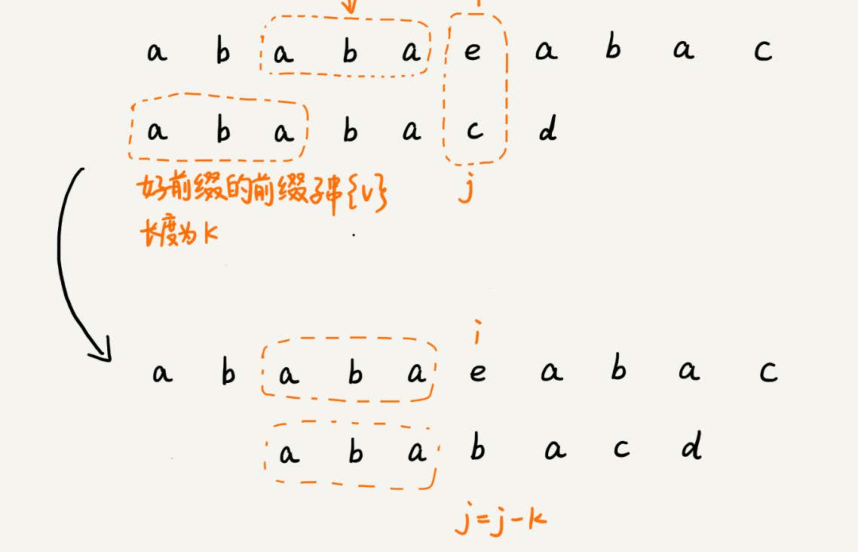 a b a b a e a b a c
a b a b a c d
好前缀的前缀子串{v}
j
长度为k
i
a b a b a e a b a c
a b a b a c d
j=j-k